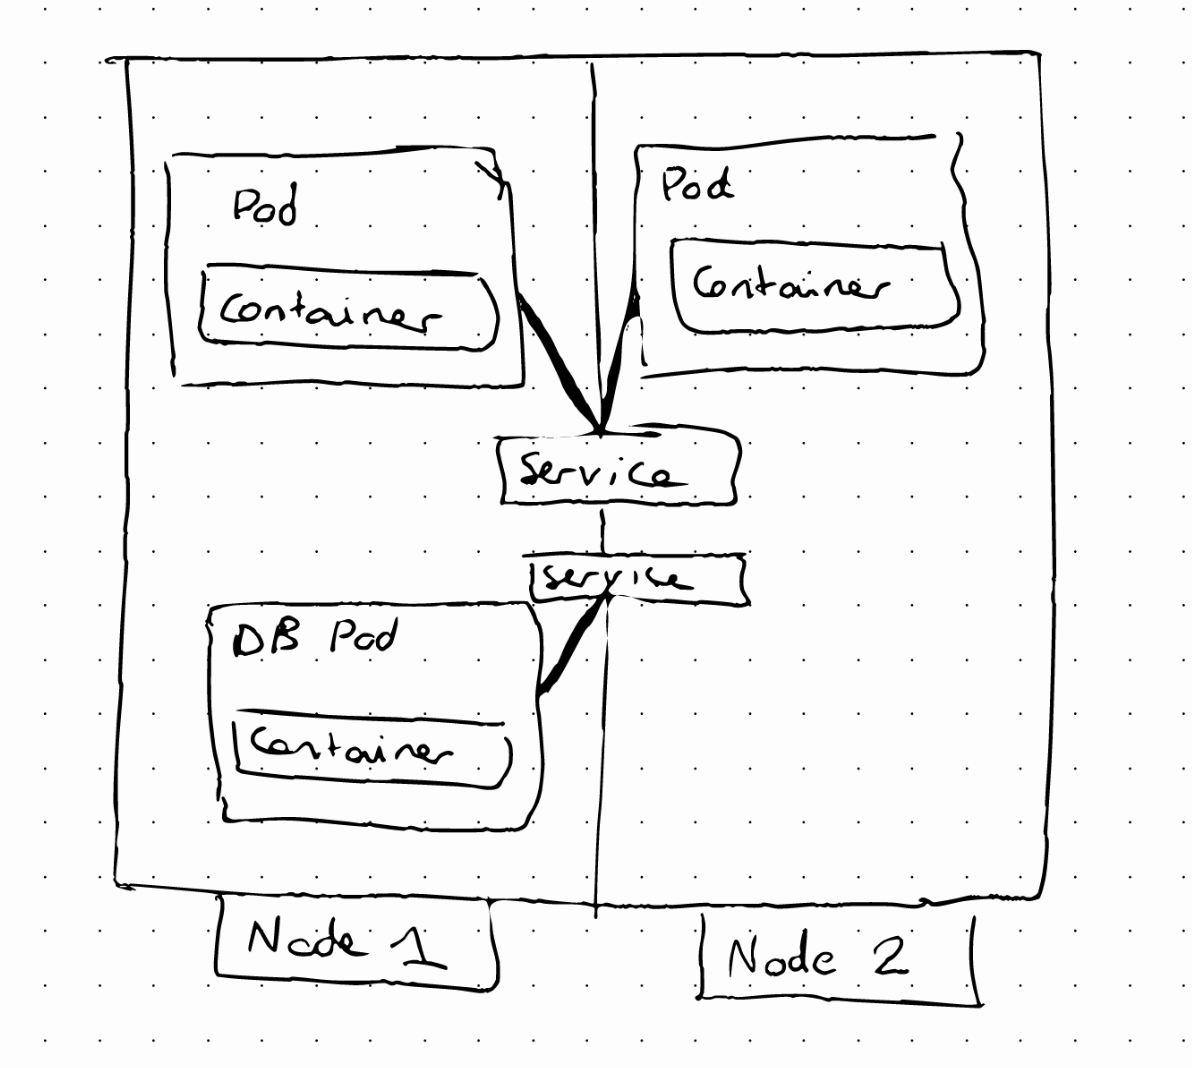 Pod
Pod
Container
Container
Service
Service
DB Pod
Container
Node 1
Node 2